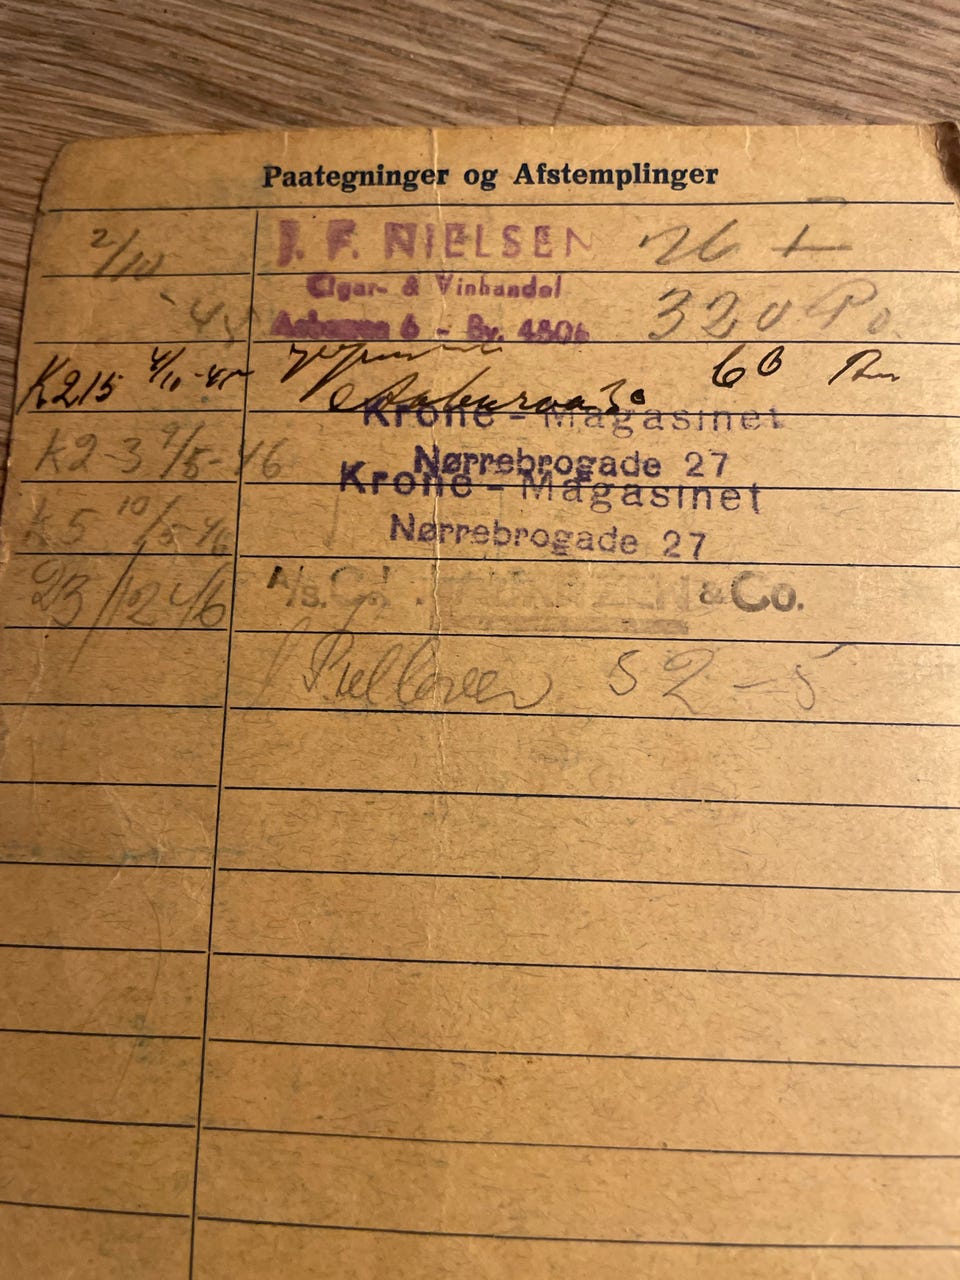 Paategninger og Afstemplinger
2/10 J. F. NIELSEN 26
Cigar- & Vinhandel
45 Aabenraa 6 - By. 4806 320
K215 4/10-45 6
Aabenraa
Krone - Magasinet
K2-3 9/5-46 Nørrebrogade 27
Krone - Magasinet
K5 10/5-46 Nørrebrogade 27
23/12 46 A/S. & Co.
52-5